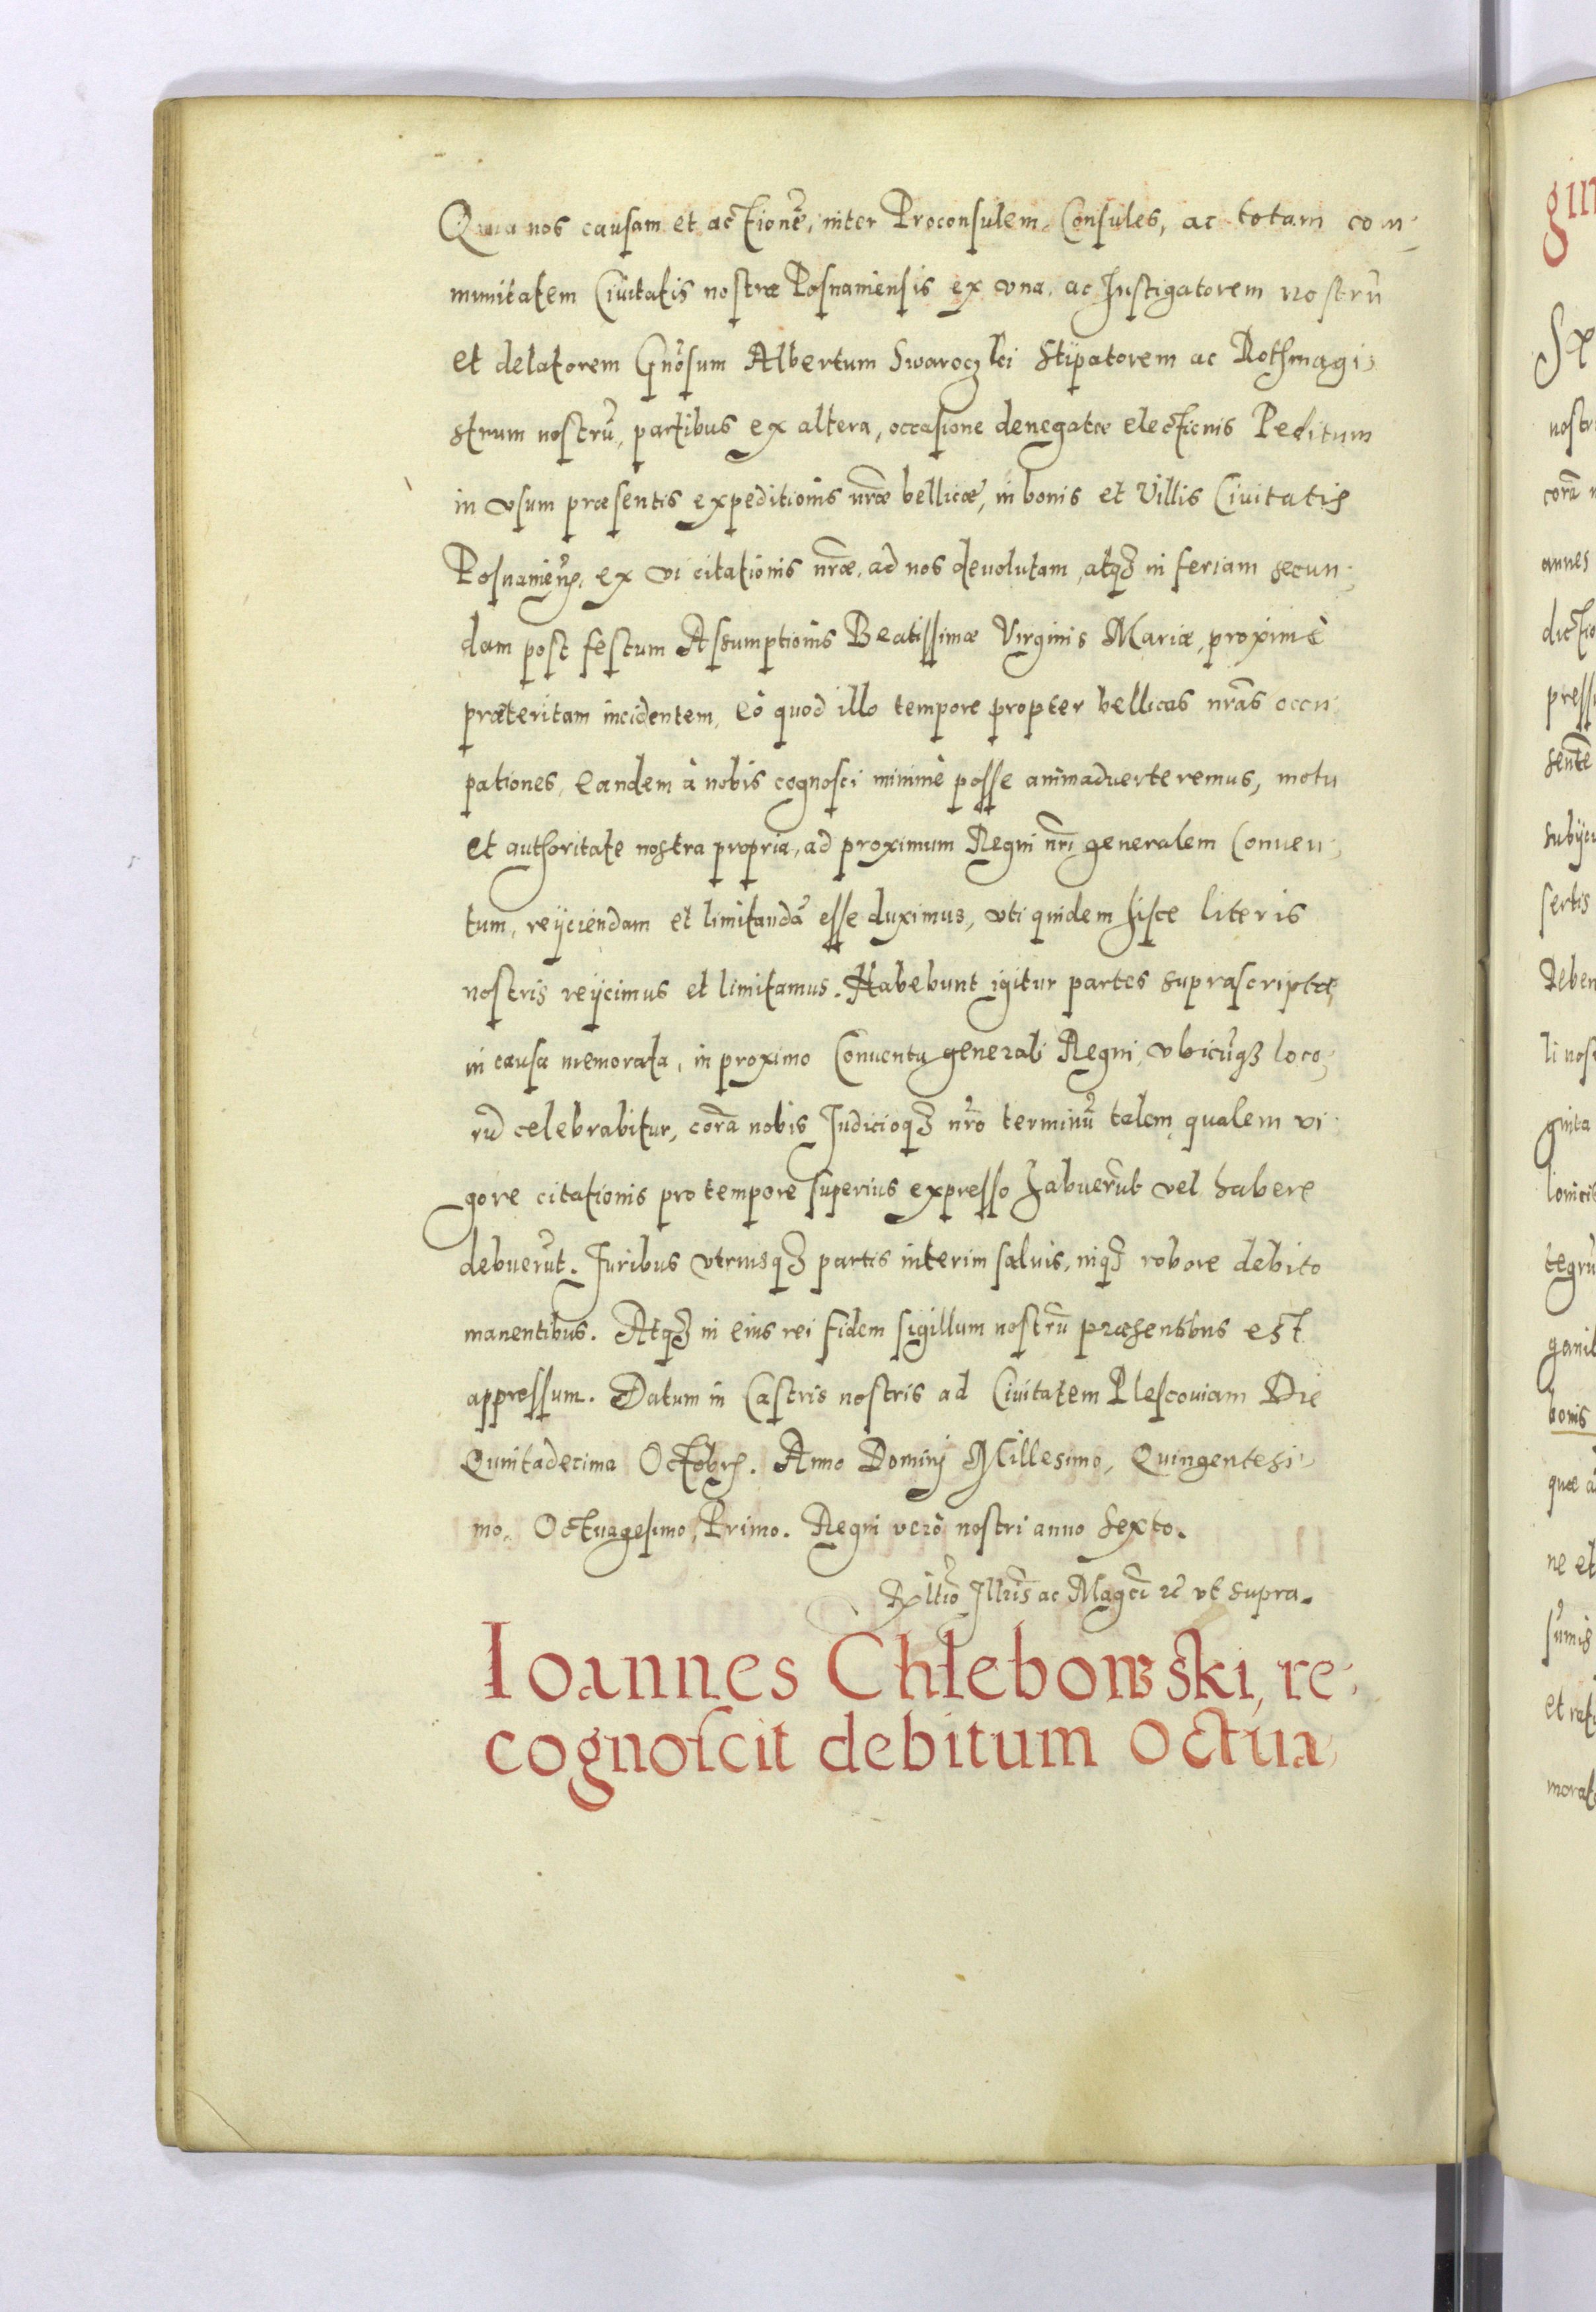 Quia nos causam et actionē, inter Proconsulem, Consules, ac totam com-
munitatem Ciuitatis nostræ Posnaniensis ex vna, ac Instigatorem nostrū
et delatorem Gnōsum Albertum Swaroczki Stipatorem ac Rothmagi-
strum nostrū, partibus ex altera, occasione denegatæ electionis Peditum
in vsum præsentis expeditionis nr̄æ bellicæ, in bonis et Villis Ciuitatis
Posnanien̄, ex vi citationis nr̄æ, ad nos deuolutam, atqȝ in feriam secun-
dam post festum Assumptionis Beatissimæ Virginis Mariæ, proximè
præteritam incidentem, Eò quod illo tempore propter bellicas nr̄as occu-
pationes, Eandem à nobis cognosci minimè posse animaduerteremus, motu
et authoritate nostra propria, ad proximum Regni nr̄i generalem Conuen-
tum, reijciendam et limitandā esse duximus, vti quidem hisce literis
nostris reijcimus et limitamus. Habebunt igitur partes suprascriptæ,
in causa memorata, in proximo Conuentu generali Regni, vbicūqȝ loco-
rū celebrabitur, corā nobis Judicioqȝ nr̄o terminū talem, qualem vi-
gore citationis pro tempore superius expresso habuerūt vel habere
debuerūt. Juribus vtriusqȝ partis interim saluis, inqȝ robore debito
manentibus. Atqȝ in eius rei fidem sigillum nostrū præsentibus est
appressum. Datum in Castris nostris ad Ciuitatem Plescouiam Die
Quintadecima Octobrꝭ. Anno Dominj Millesimo, Quingentesi-
mo, Octuagesimo, Primo. Regni verò nostri anno Sexto.
Rl̄tio Illr̄is ac Magc̄i ꝛc̄ vt supra.
Ioannes Chlebowski, re-
cognoscit debitum octua-